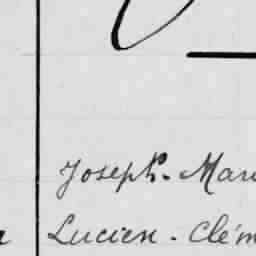 Joseph-Mari
Lucien-Clém